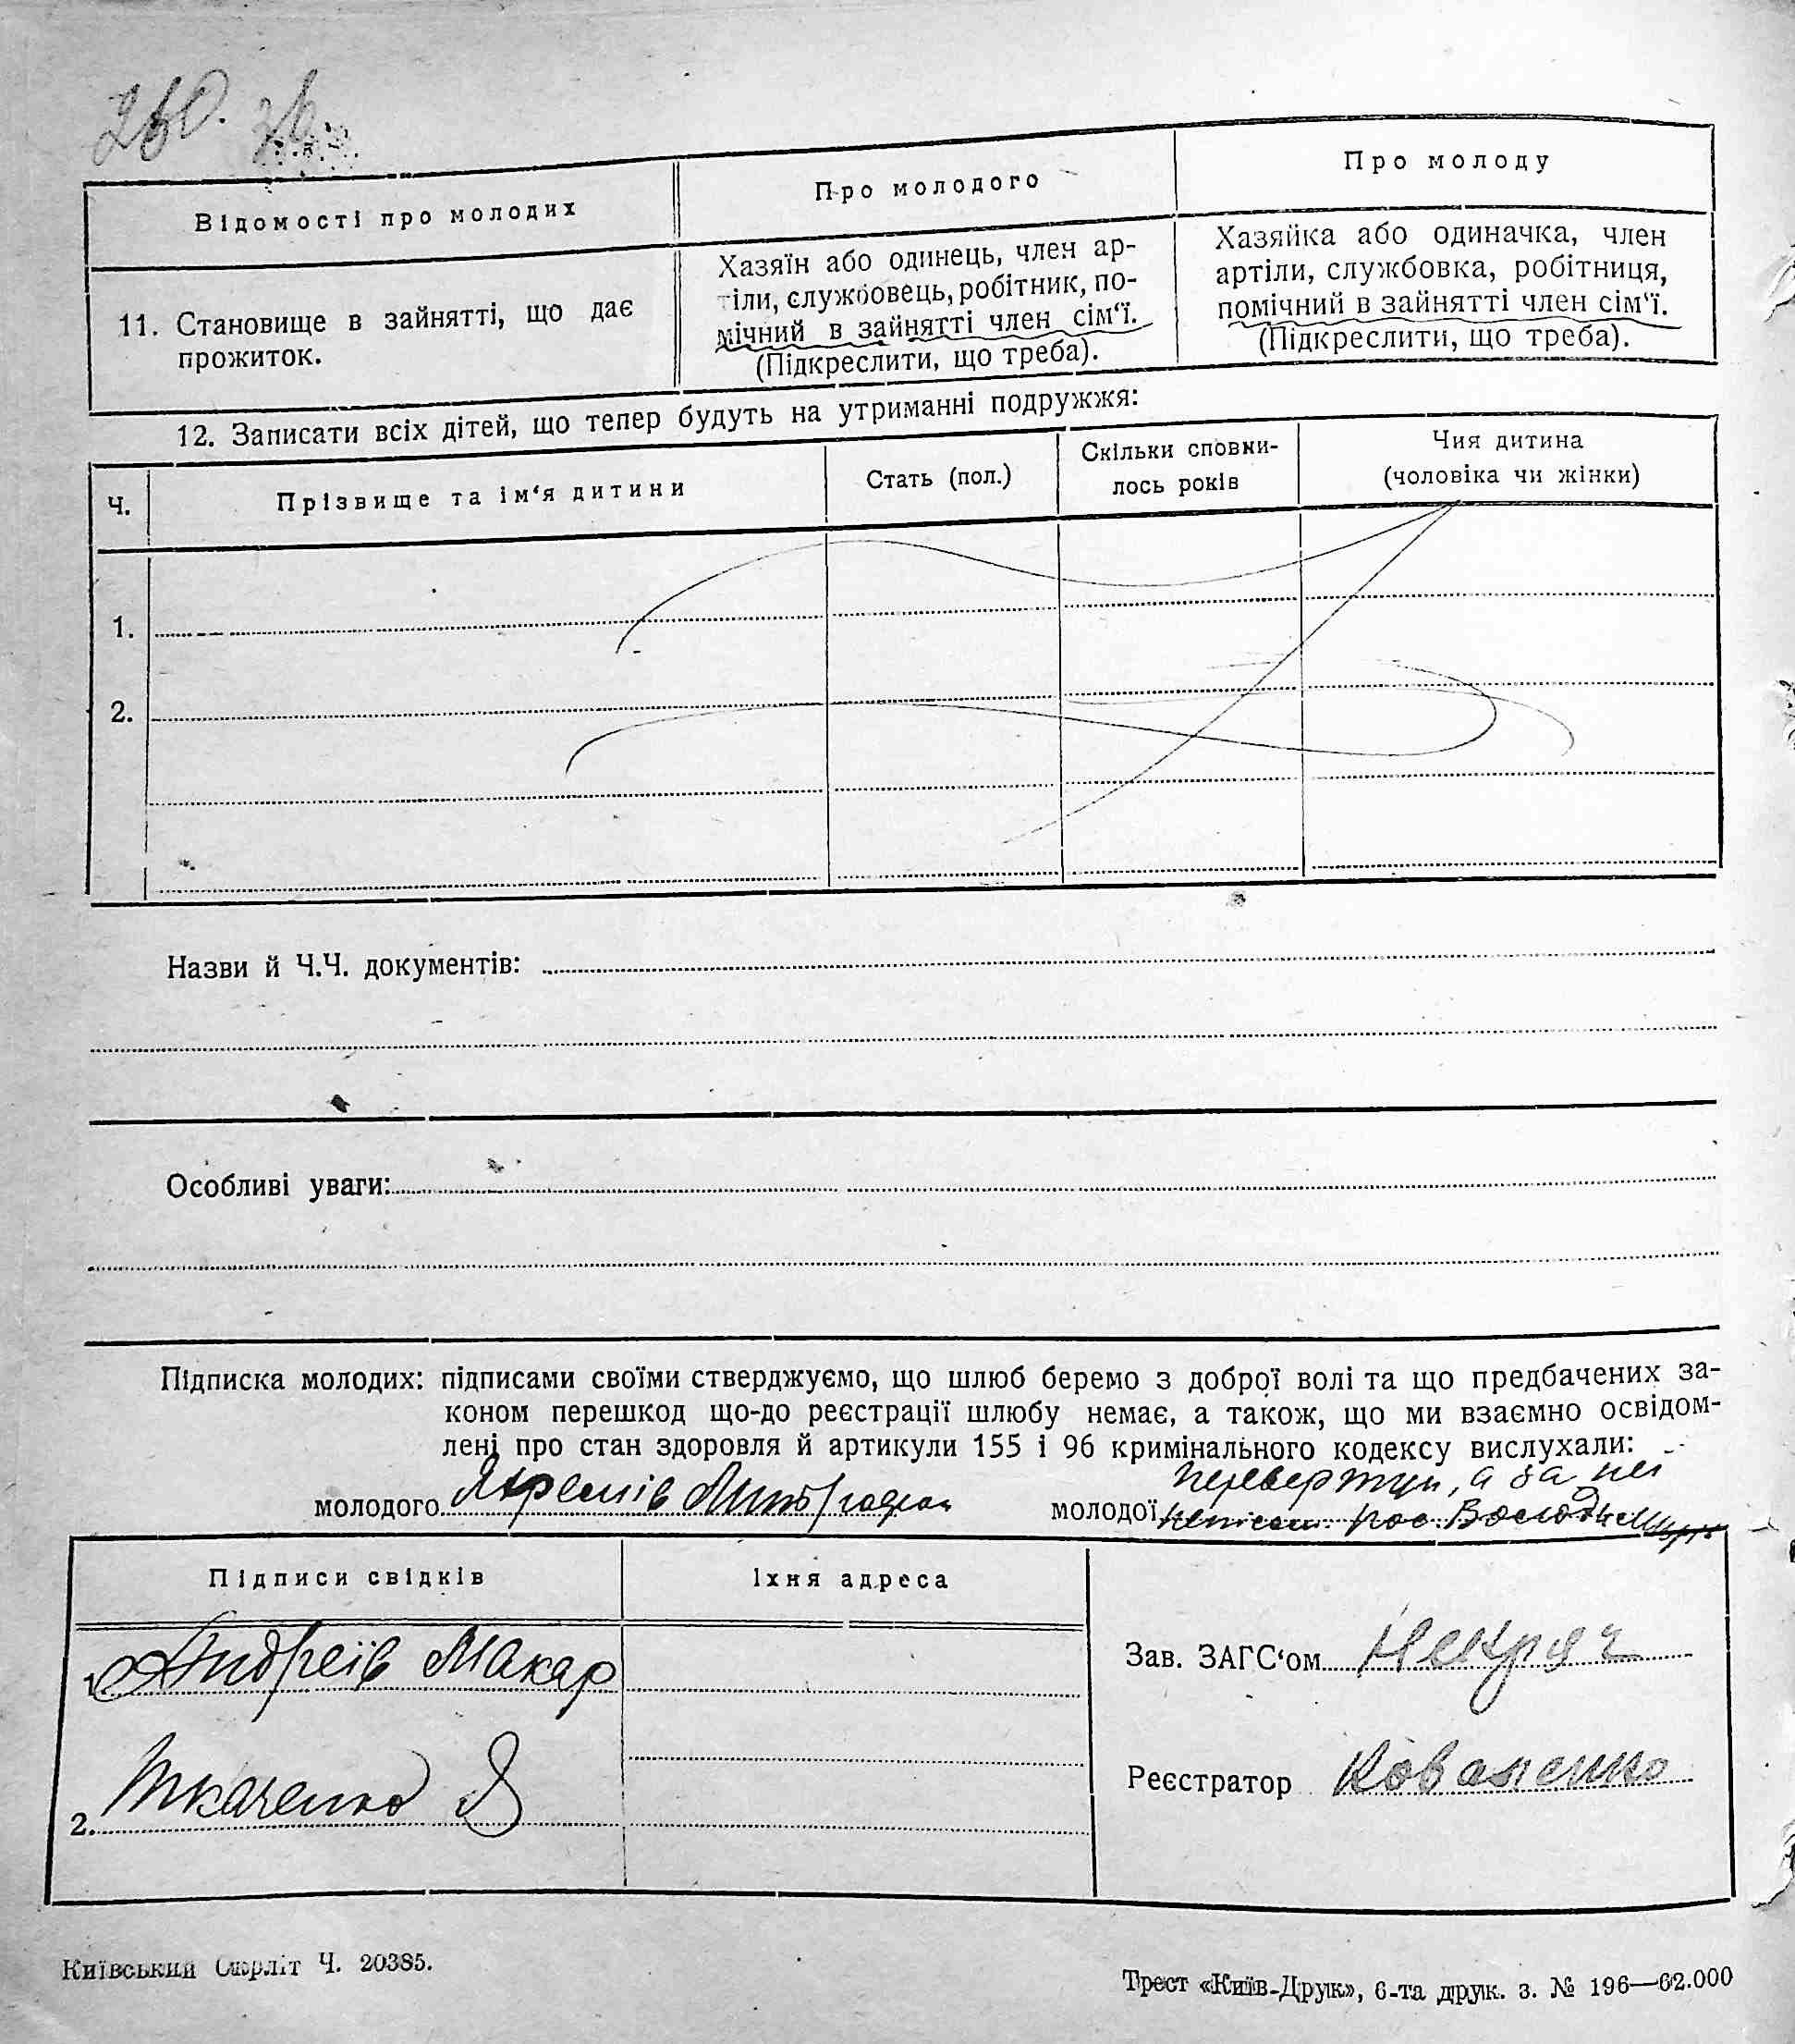 260. зв.
Відомості про молодих
Про молодого
Про молоду
11. Становище в зайнятті, що дає
прожиток.
Хазяїн або одинець, член ар-
тіли, службовець, робітник, по-
мічний в зайнятті член сім‘ї.
(Підкреслити, що треба).
Хазяйка або одиначка, член
артіли, службовка, робітниця,
помічний в зайнятті член сім‘ї.
(Підкреслити, що треба).
12. Записати всіх дітей, що тепер будуть на утриманні подружжя:
Ч.
Прізвище та ім‘я дитини
Стать (пол.)
Скільки сповни-
лось років
Чия дитина
(чоловіка чи жінки)
1.
2.
Назви й Ч.Ч. документів:
Особливі уваги:
Підписка молодих: підписами своїми стверджуємо, що шлюб беремо з доброї волі та що предбачених за-
коном перешкод що-до реєстрації шлюбу немає, а також, що ми взаємно освідом-
лені про стан здоровля й артикули 155 і 96 кримінального кодексу вислухали:
а за неї
молодого
молодої
Підписи свідків
Їхня адреса
Андреїв Макар
Зав. ЗАГС‘ом Некряч
2. Ткаченко
Реєстратор Коваленко
Київський Окрліт Ч. 20385.
Трест «Київ-Друк», 6-та друк. з. № 196—62.000